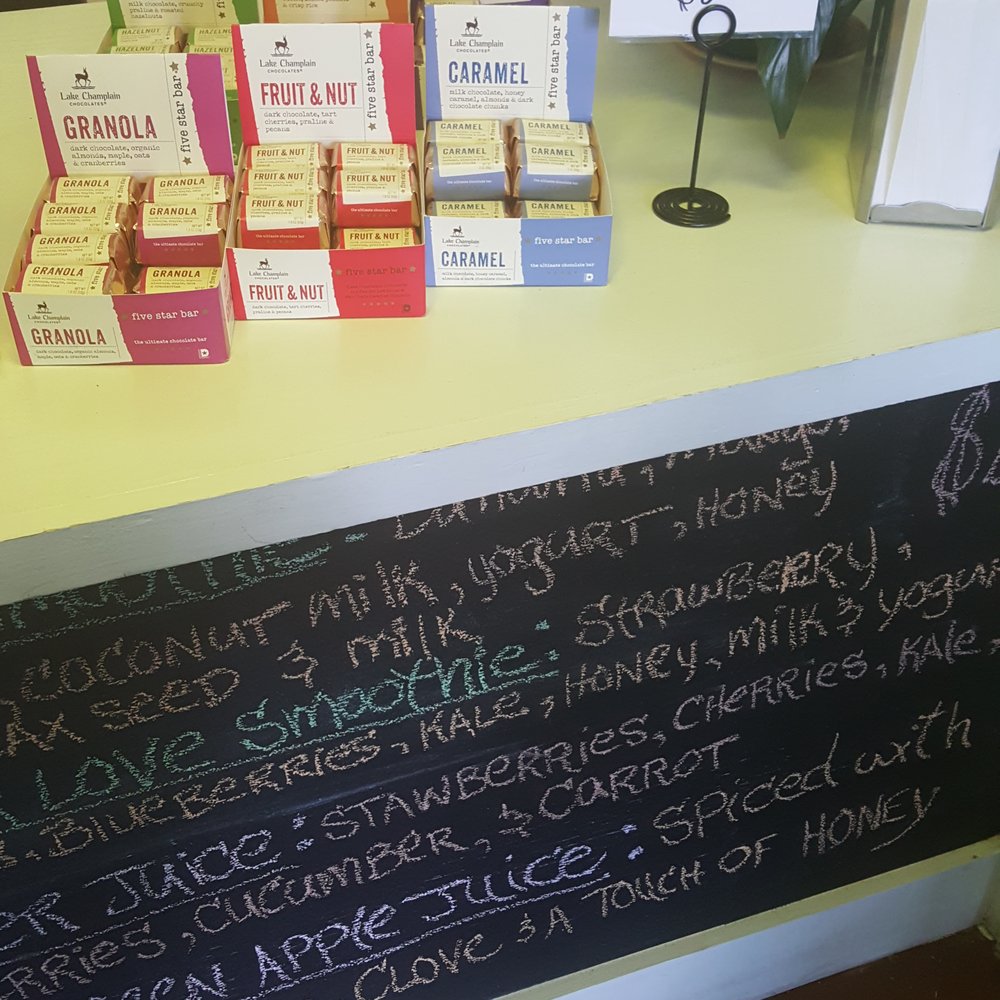 milk chocolate, crunchy
praline & roasted
hazelnuts
crisp rice
HAZELNUT
HAZELNUT
Lake Champlain
CHOCOLATES
GRANOLA
dark chocolate, organic
almonds, maple, oats
& cranberries
five star bar
Lake Champlain
CHOCOLATES
FRUIT & NUT
dark chocolate, tart
cherries, praline &
pecans
five star bar
Lake Champlain
CHOCOLATES
CARAMEL
milk chocolate, honey
caramel, almonds & dark
chocolate chunks
five star bar
GRANOLA
GRANOLA
GRANOLA
GRANOLA
GRANOLA
GRANOLA
GRANOLA
the ultimate chocolate bar
FRUIT & NUT
FRUIT & NUT
FRUIT & NUT
FRUIT & NUT
FRUIT & NUT
FRUIT & NUT
the ultimate chocolate bar
CARAMEL
CARAMEL
CARAMEL
CARAMEL
CARAMEL
CARAMEL
the ultimate chocolate bar
Lake Champlain
CHOCOLATES
GRANOLA
dark chocolate, organic almonds,
maple, oats & cranberries
five star bar
the ultimate chocolate bar
Lake Champlain
CHOCOLATES
FRUIT & NUT
dark chocolate, tart cherries,
praline & pecans
five star bar
Lake Champlain
CHOCOLATES
CARAMEL
milk chocolate, honey caramel,
almonds & dark chocolate chunks
five star bar
the ultimate chocolate bar
COCONUT milk, yogurt, HONEY
Ax seed & milk
LOVE Smoothie: STRAWBERRY,
BlUEBERRIES, KALE, HONEY, milk & yogur
JUICE: STAWBERRIES, CHERRIES, KALE,
RRIES, CUCUMBER, & CARROT
APPLE JUICE: SPICED with
CLOVE & A TOUCH OF HONEY